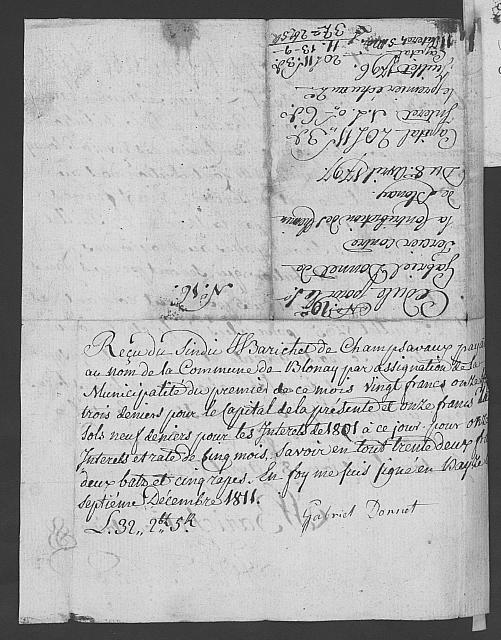 N.o 16.
N.o 19.
Cedule pour le Sr
Gabriel Donnet de
Tercier contre
la Contribution des Communs
de Blonay
Du 8.e Avril 1797
Capital 20 f 11 s 3 d.
Interet
le premier échu au 2e
Juillet 1798.
Capital
20 f 11 s 3 d.
11. 13. 9
32 2 btz 5 R
Reçu du Sindic H Barichet de Champsavaux payant
au nom de la Commune de Blonay par assignation de la
Municipalité du premier de ce mois vingt francs onze
trois deniers pour le Capital de la présente et onze francs
sols neuf deniers pour les Interets de 1801 à ce jour. pour onze
Interets et rate de Cinq mois, Savoir en tout trente deux francs
deux batz et cinq rapes. En foy me suis signé en
septiéme Décembre 1811.
L. 32,, 2 btz 5 R
Gabriel Donnet